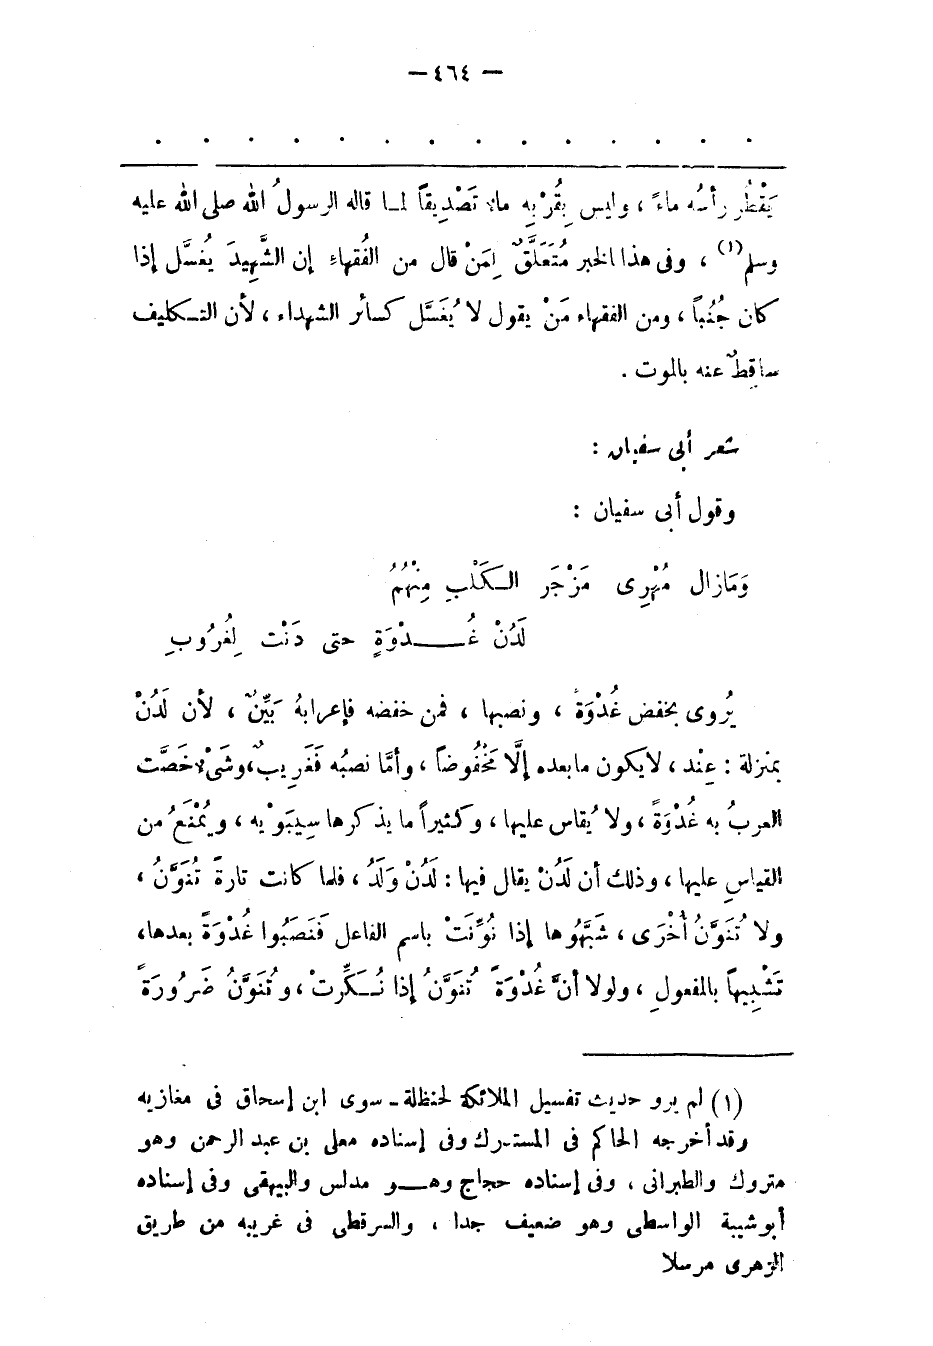 — ٤٦٤ —
يَقْطُر رأسُه ماءً ، وليس بِقُرْبِه ماء تَصْدِيقاً لما قاله الرسولُ الله صلى الله عليه
وسلم(١) ، وفى هذا الخبر مُتَعَلَّقٌ لِمَنْ قال من الفُقهاءِ إن الشَّهِيدَ يُغَسَّل إذا
كان جُنُباً ، ومن الفقهاء مَنْ يقول لا يُغَسَّل كسائر الشهداء ، لأن التكليف
ساقِطٌ عنه بالموت .
شعر أبى سفيان :
وقول أبى سفيان :
وَمَازال مُهْرِى مَزْجَر الكَلْبِ مِنْهُمُ
لَدُنْ غُدْوَةٍ حتى دَنَت لِغُرُوبِ
يُروى بخفض غُدْوَة ، ونصبها ، فمن خفضه فإعرابهُ بَيِّنٌ ، لأن لَدُنْ
بمنزلة : عِنْد ، لايكون مابعده إلَّا مَخْفُوضاً ، وأمَّا نصبُه فَغَرِيبٌ، وشَىْء خَصَّت
العربُ به غُدْوَةً ، ولا يُقاس عليها ، وكثيراً ما يذكرها سِيبَوَيْه ، ويُمْنَعُ من
القياسِ عليها ، وذلك أن لَدُنْ يقال فيها : لَدُنْ وَلَدُ ، فلما كانت تارةً تُنَوَّنُ ،
ولا تُنَوَّنُ أُخْرَى ، شَبَّهُوها إذا نُوِّنَتْ باسم الفاعل فَنَصَبُوا غُدْوَةً بعدها،
تَشْبِيهاً بالمفعولِ ، ولولا أنَّ غُدْوَةً تُنَوَّنُ إذا نُكِّرتْ ، وتُنَوَّنُ ضَرُورَةً
(١) لم يرو حديث تفسيل الملائكة لحنظلة ـ سوى ابن إسحاق فى مغازيه
وقد أخرجه الحاكم فى المستدرك وفى إسناده معلى بن عبد الرحمن وهو
متروك والطبرانى ، وفى إسناده حجاج وهو مدلس والبيهقى وفى إسناده
أبوشيبة الواسطى وهو ضعيف جدا ، والسرقطى فى غريبه من طريق
الزهرى مرسلا